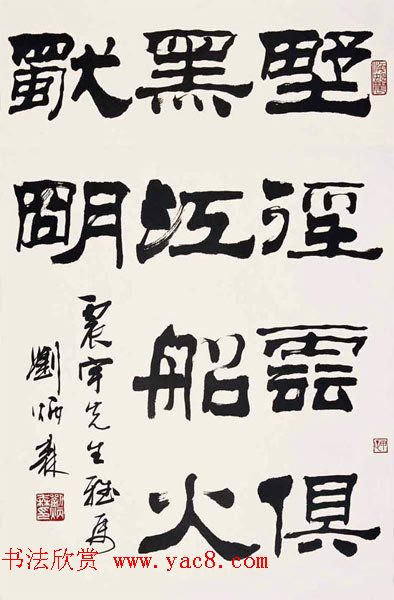 野徑雲俱
黑江船火
獨明
震宇先生雅屬
劉炳森
书法欣赏 www.yac8.com